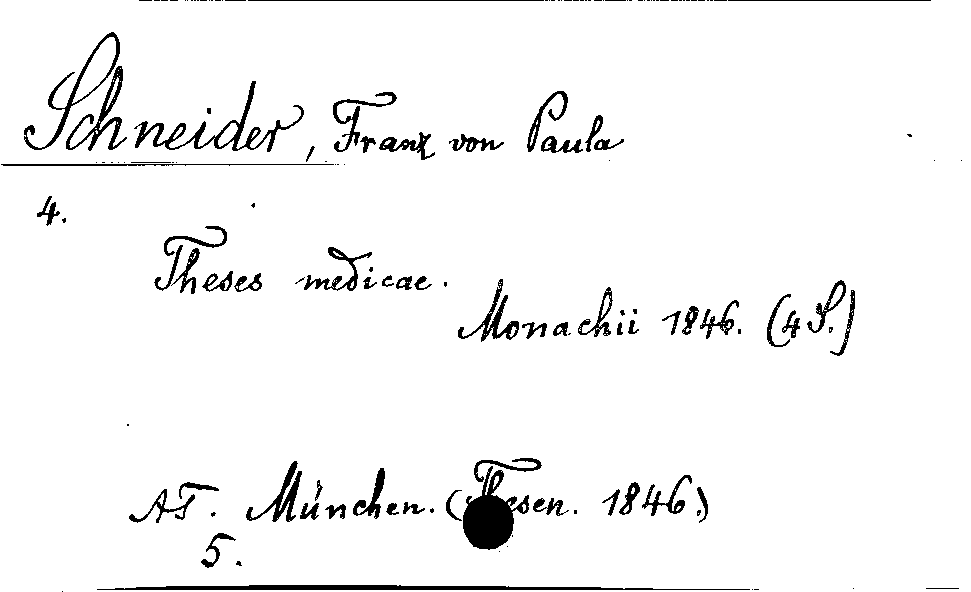 Schneider, Franz von Paula
4.
Theses medicae.
Monachii 1846. (4 S.)
AT. München. (Thesen. 1846.)
5.